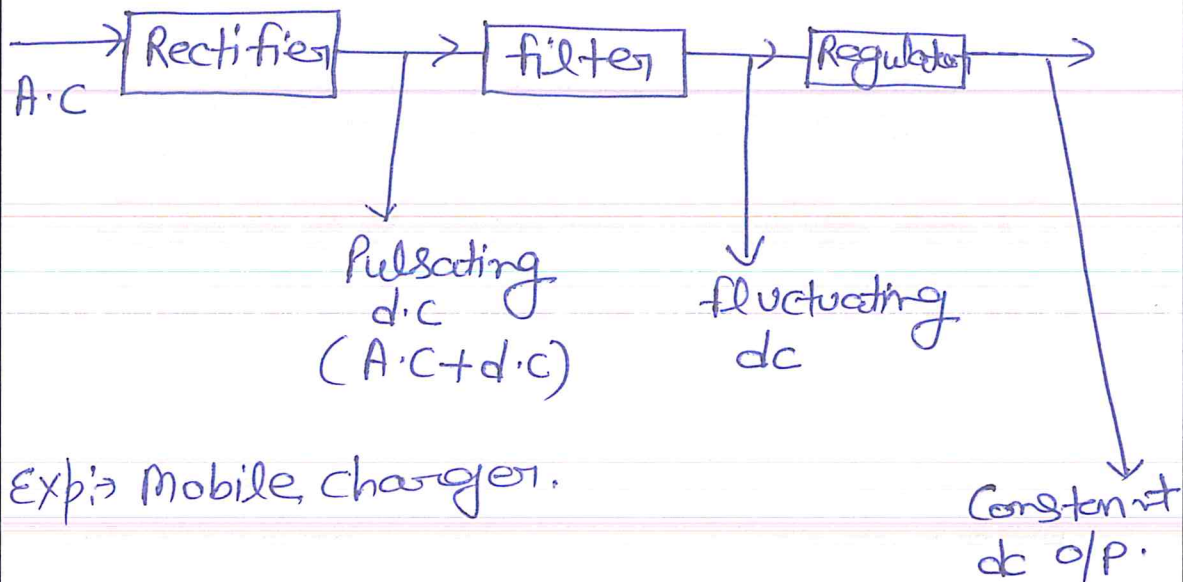 Rectifier
filter
Regulator
A.C
Pulsating
d.c
(A.C+d.c)
fluctuating
dc
Exp:→ Mobile charger.
Constant
dc o/p.